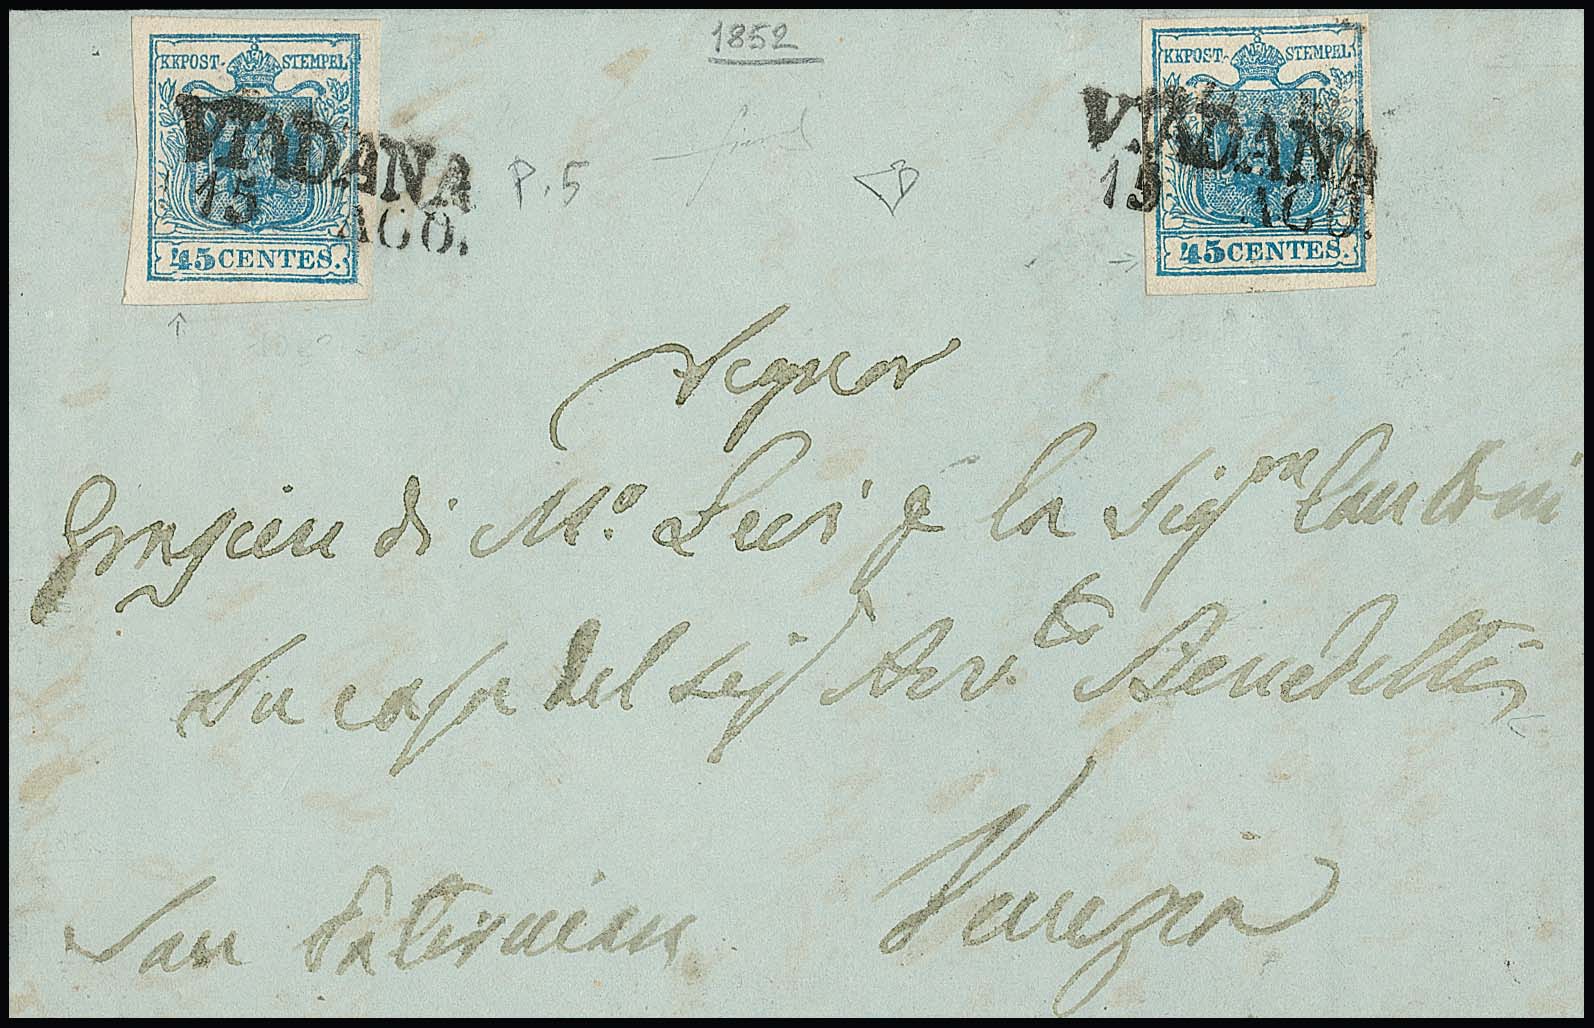 1852
KKPOST-STEMPEL
VIADANA
15 AGO.
45 CENTES.
P.5
KKPOST-STEMPEL
VIADANA
15 AGO.
45 CENTES.
Signor
Graziere di M.º Levi p la Sig.ra Cantoni
In casa del Sig Avv.to Benedetti
Venezia
San